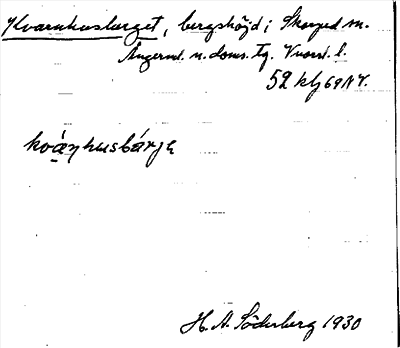 Kvarnhusberget, bergshöjd i Skorped sn.
Ångerml. n. doms. Tg. Vnorrl. l.
52 klg 69 NV.
kvàṇhusbárjẹ
H. A. Söderberg 1930